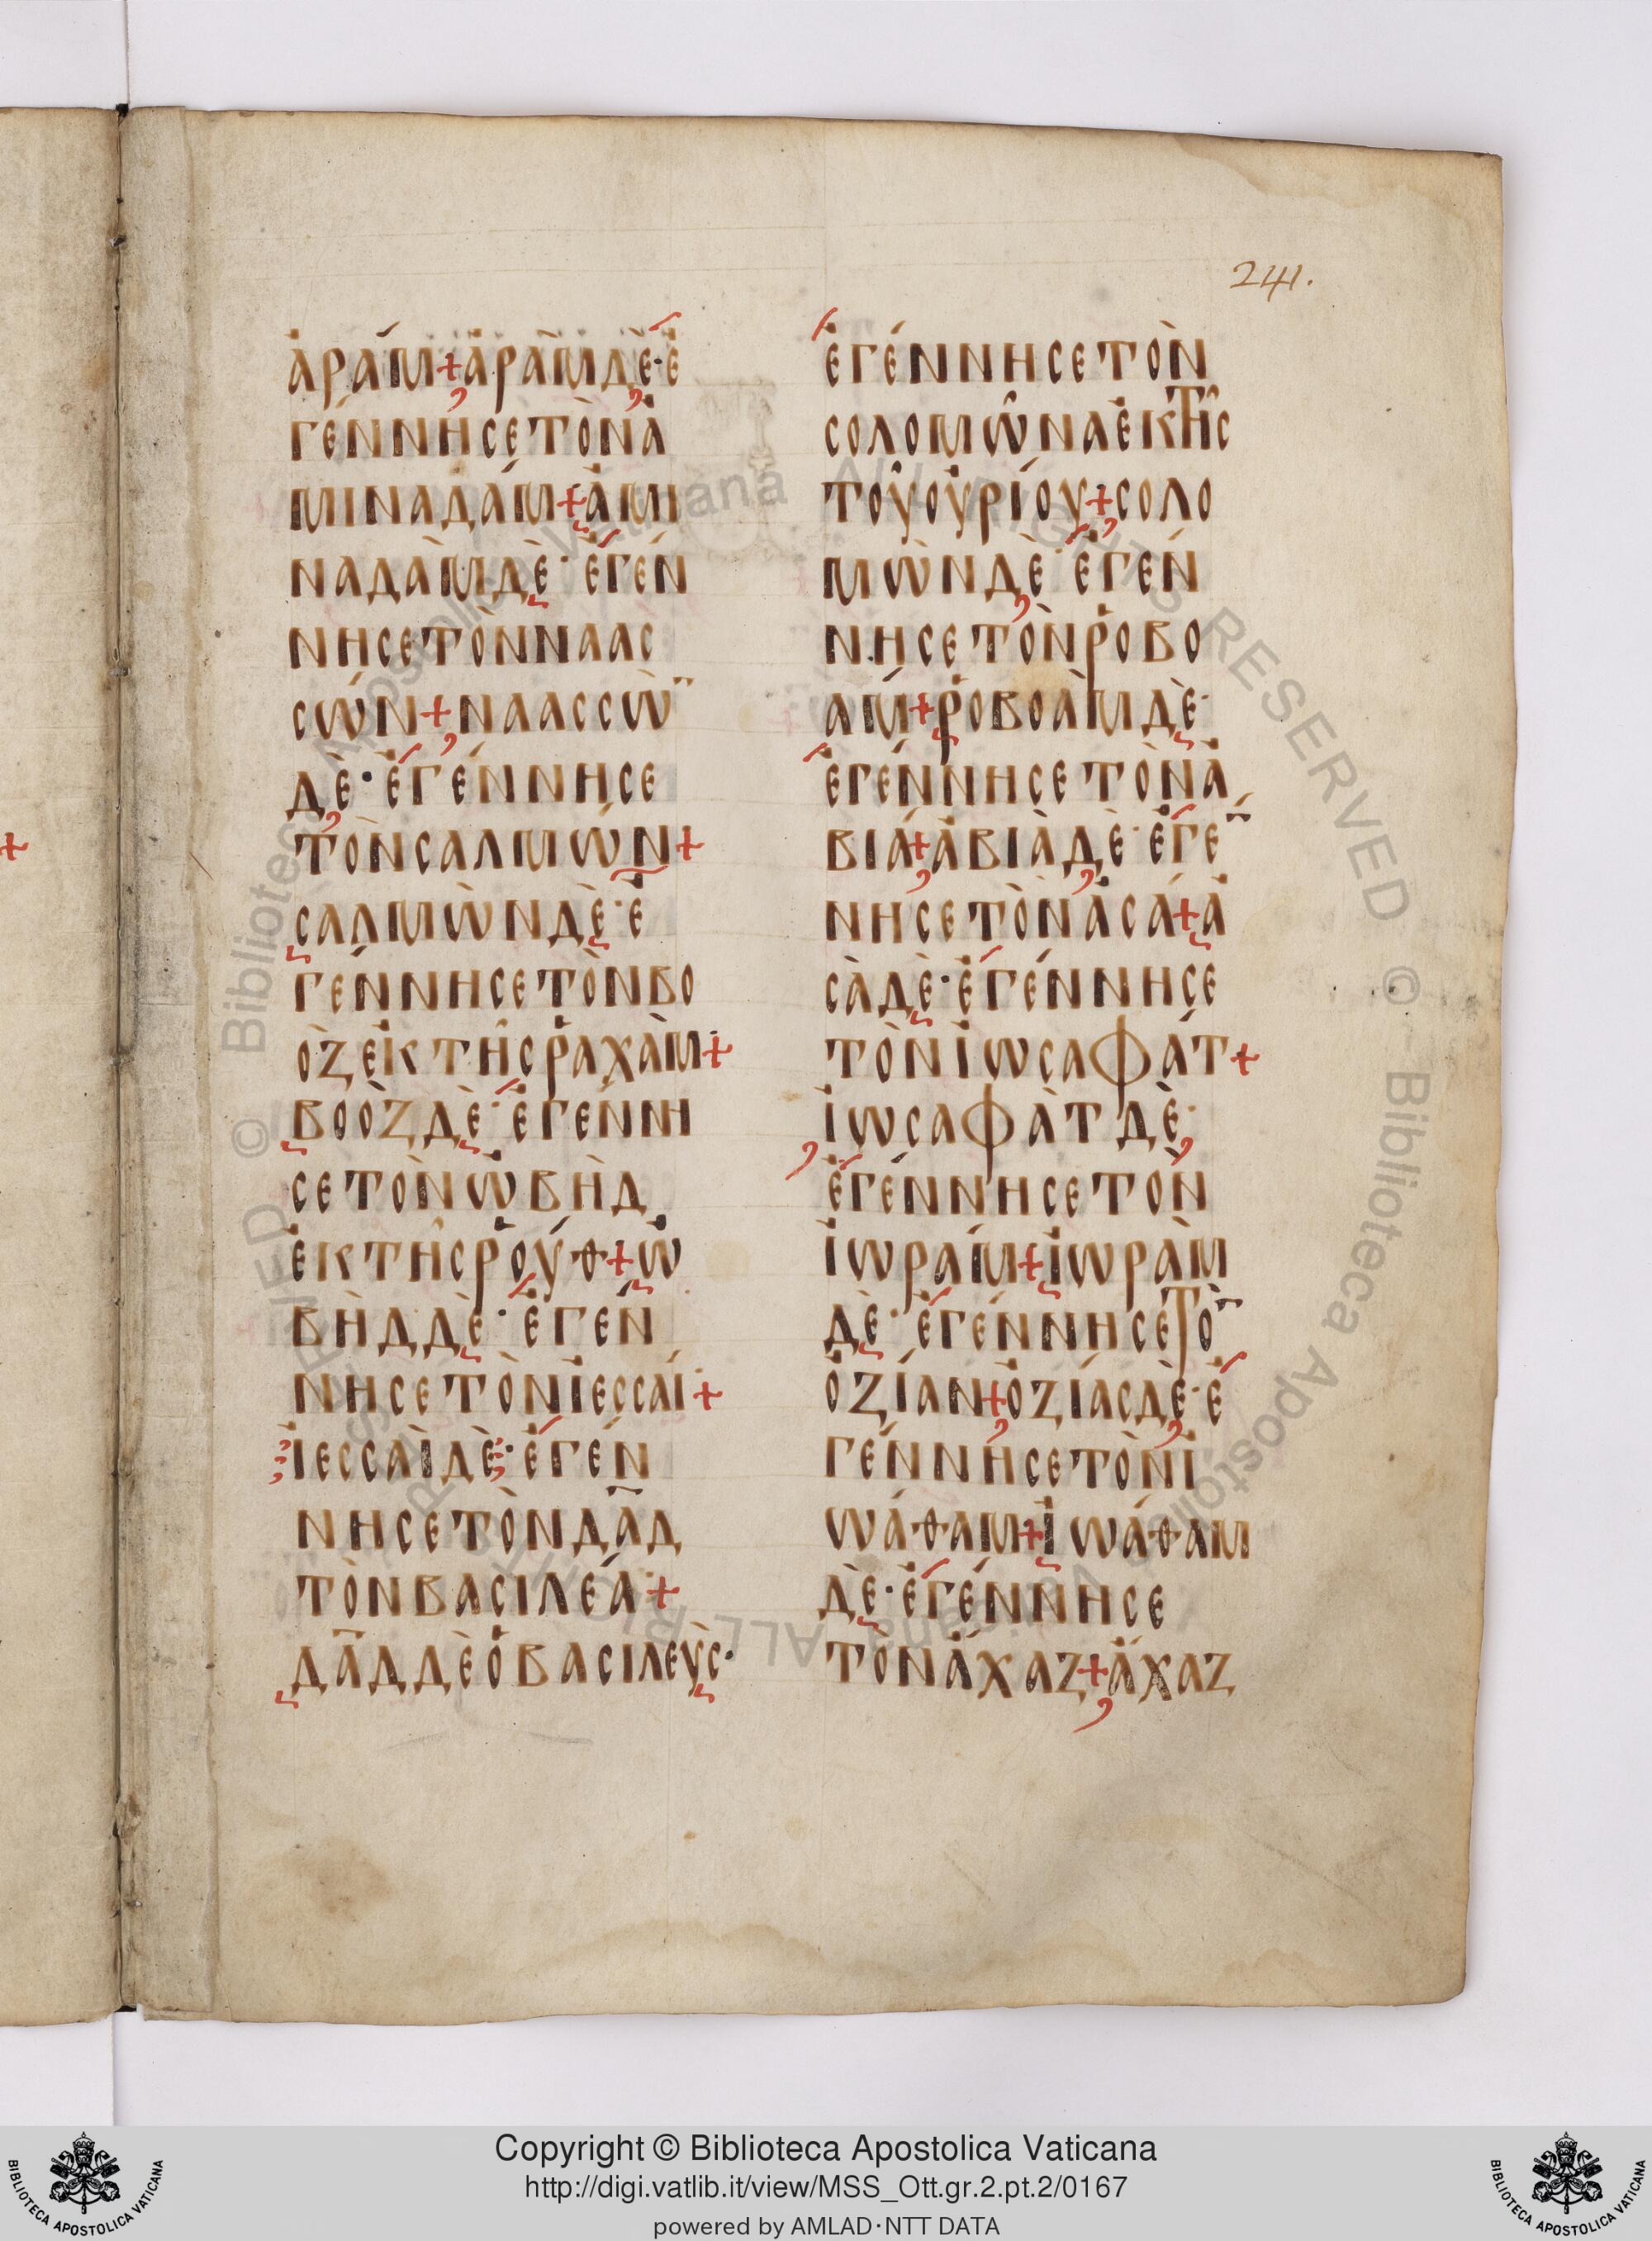 241.
ἀράμ + ἀρὰμ δὲ · ἐ
γέννησε τὸν ἀ
μιναδάμ + ἀμι
ναδὰμ δὲ · ἐγέν
νησε τὸν ναασ
σών + ναασσὼ̅
δὲ · ἐγέννησε
τὸν σαλμών +
σαλμὼν δὲ · ἐ
γέννησε τὸν βο
ὸζ ἐκ τῆς ῥαχὰμ +
βοοζ δὲ · ἐγέννη
σε τὸν ὠβὴδ
ἐκ τῆς ῥούθ + ὠ
βὴδ δὲ · ἐγέν
νησε τὸν ἰεσσαί +
ἰεσσαὶ δὲ · ἐγέν
νησε τὸν δα̅δ
τὸν βασιλέα +
δα̅δ δὲ ὁ βασιλεὺς ·
ἐγέννησε τὸν
σολομῶνα ἐκ τῆς
τοῦ οὐρίου + σολο
μὼν δὲ · ἐγέν
νησε τὸν ῥοβο
άμ + ῥοβοὰμ δὲ ·
ἐγέννησε τὸν ἀ
βιά + ἀβιὰ δὲ · ἐγέ̅
νησε τὸν ἀσά + ἀ
σὰ δὲ · ἐγέννησε
τὸν ἰωσαφάτ +
ἰωσαφὰτ δὲ ·
ἐγέννησε τὸν
ἰωράμ + ἰωρὰμ
δὲ · ἐγέννησε τὸ̅
ὀζίαν + ὀζίας δὲ · ἐ
γέννησε τὸν ἰ
ωάθαμ + ἰωάθαμ
δὲ · ἐγέννησε
τὸν ἄχαζ + ἄχαζ
Copyright © Biblioteca Apostolica Vaticana
http://digi.vatlib.it/view/MSS_Ott.gr.2.pt.2/0167
powered by AMLAD·NTT DATA
BIBLIOTECA APOSTOLICA VATICANA
BIBLIOTECA APOSTOLICA VATICANA